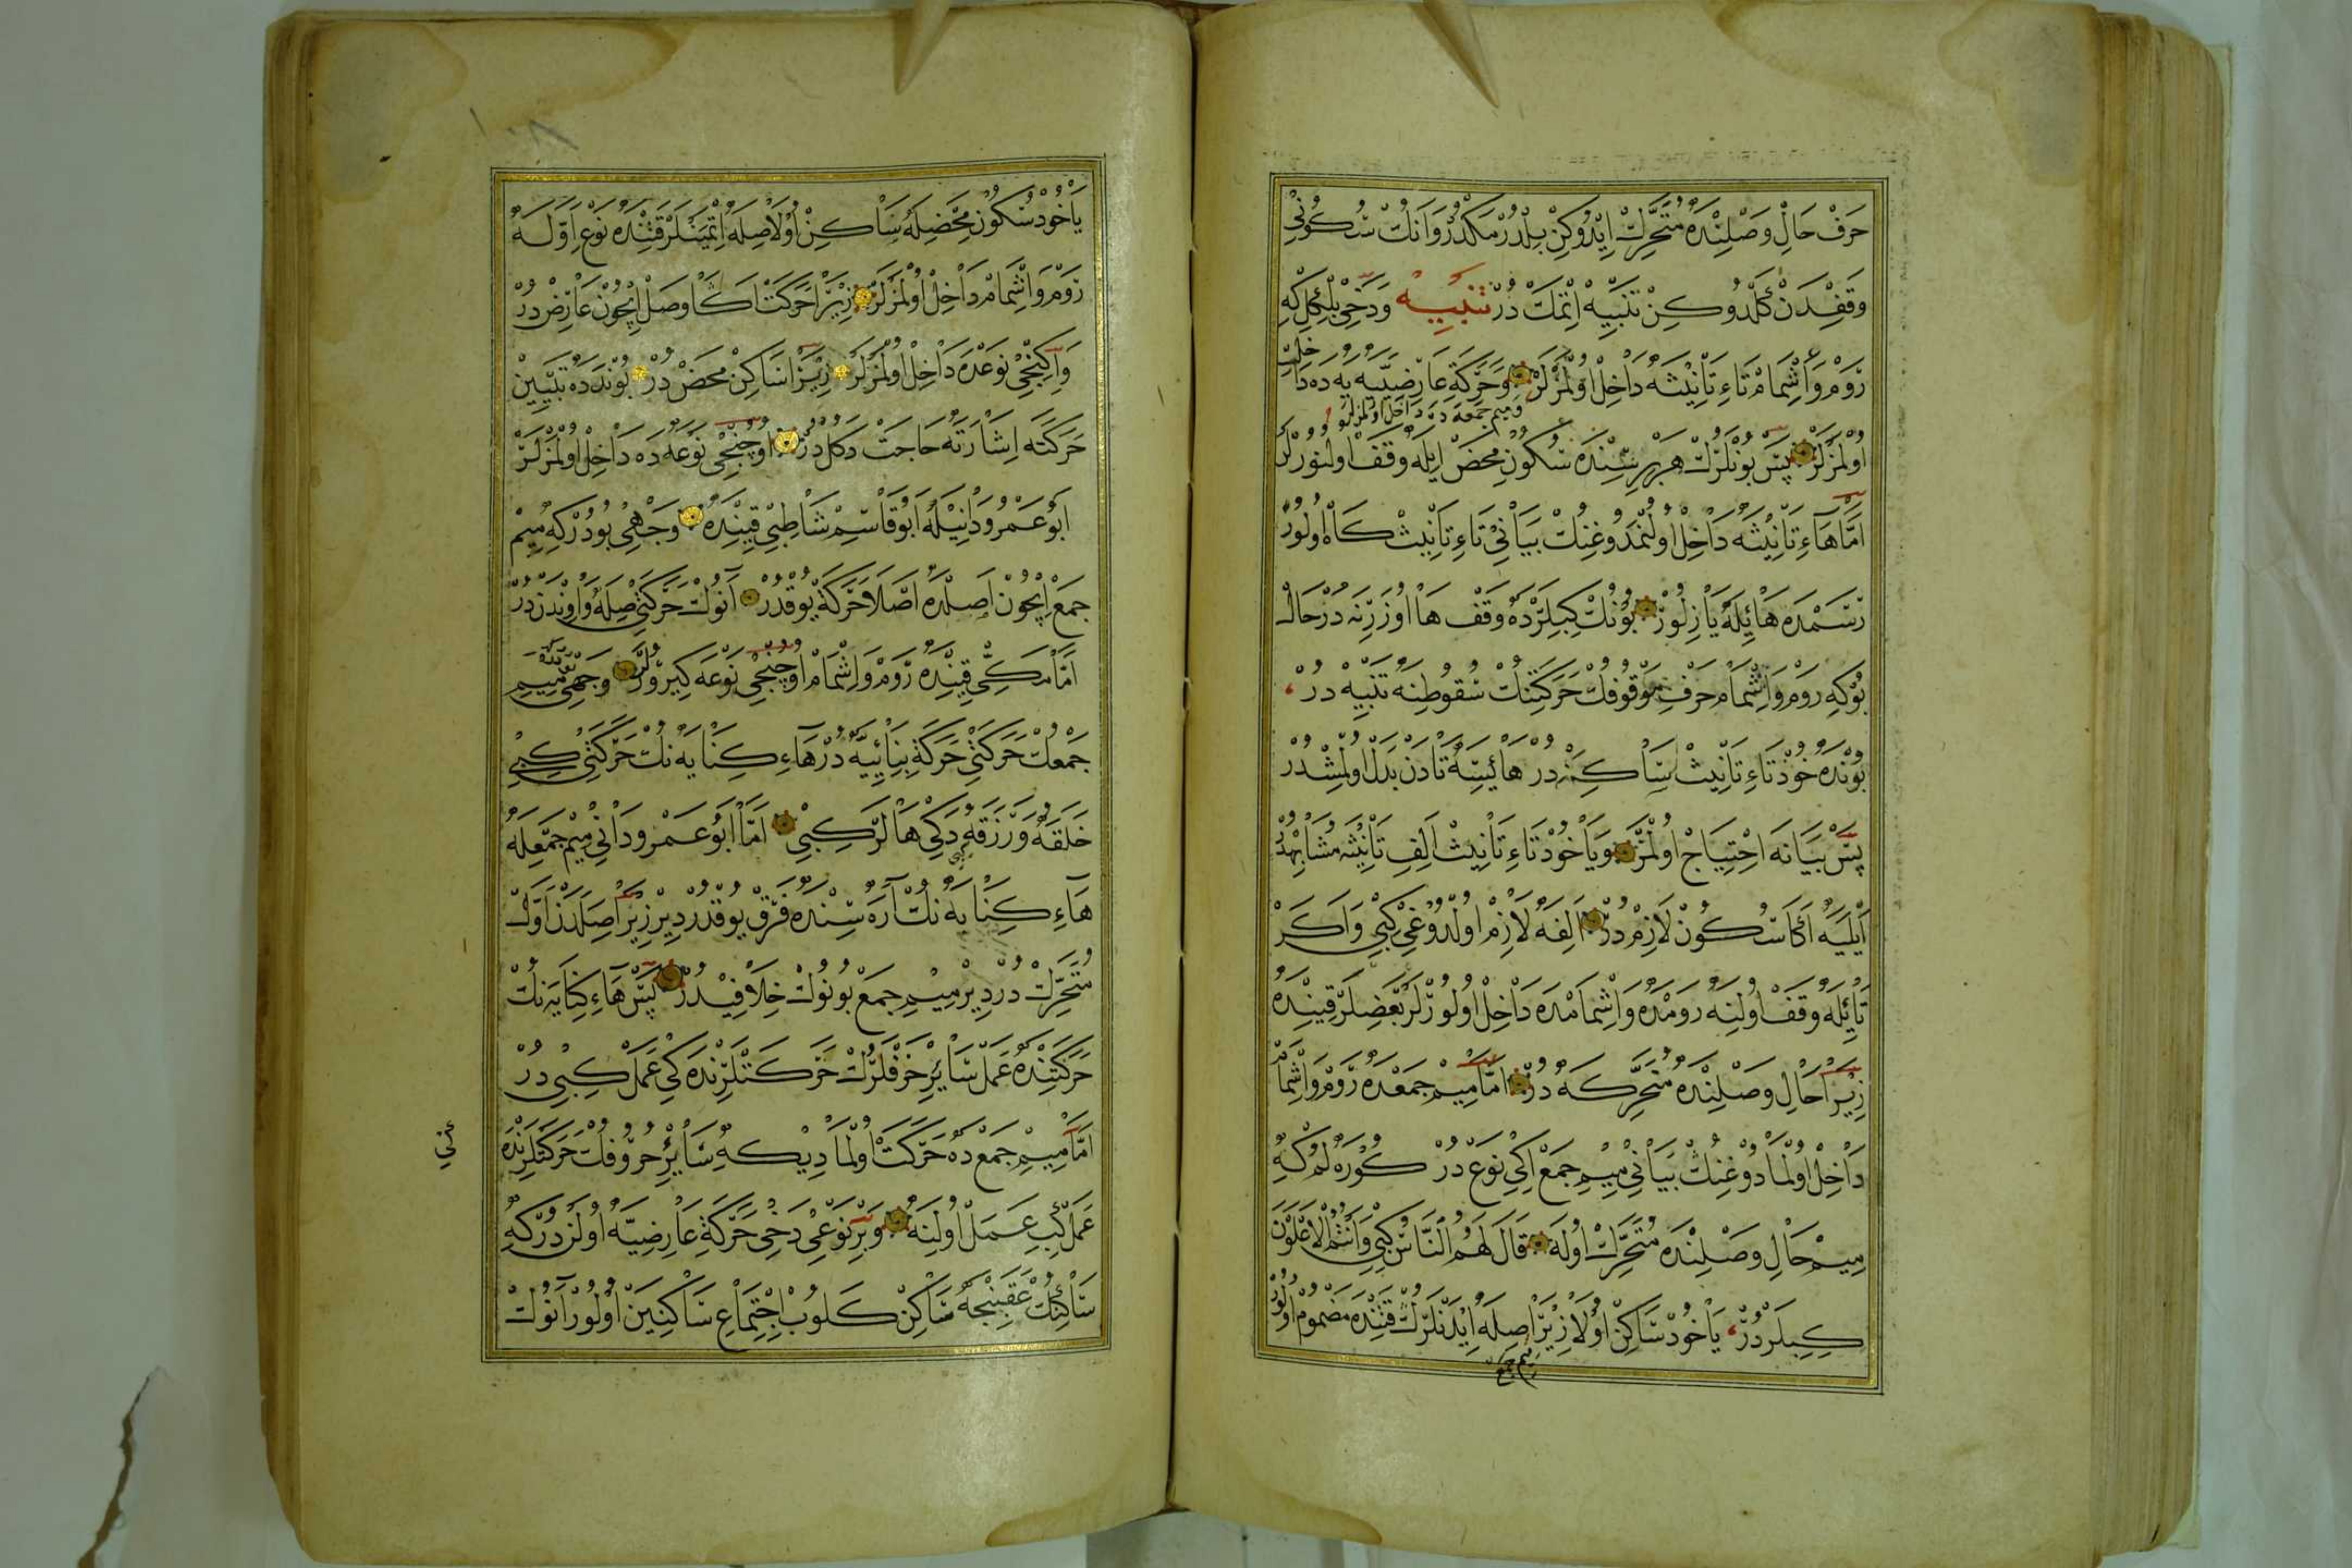 حَرَفْ حَالِ وَصْلِنْدَهْ مُتَحَرِّكْ اِيدُوكِنْ بِلْدُرْمَكْدُرْ وَاَنُكْ سُكُونِي
وَقَفِدَنْ كَلْدُوكِنْ تَنْبِيهْ اِتْمَكْ دُرْ تنبيه وَدَخِي بِلْكِلْ كِهِ
رَوْمْ وَاِشْمَامْ تَاءِ تَأْنِيثَهْ دَاخِلْ اُولْمَزْلَرْ وَحَرَكَةِ عَارِضِيَّهيَهْ دَهْ دَاخِلْ
وميم جمعه ده داخل اولمزلر
اُولْمَزْلَرْ پَسْ بُونْلَرُكْ هَرْبِرِسِنْدَهْ سُكُونِ مَحْضْ اِيلَهْ وَقَفْ اُولِنُورْلَرْ
اَمَّا هَاءِ تَأْنِيثَهْ دَاخِلْ اُولْمَدُوغِنُكْ بَيَانِي تَاءِ تَأْنِيثْ كَاهْ اُولُورْ
رَسَمْدَهْ هَائِلَهْ يَازِلُورْ بُونُكْ كِبِلَرْدَهْ وَقْفْ هَا اُوزَرِنَهْ دُرْ حَالْ
بُوكِهِ رَوْمْ وَاِشْمَامْ حَرْفِ مَوْقُوفُكْ حَرَكَتِنُكْ سُقُوطِنَهْ تَنْبِيهْ دُرْ
بُونْدَهْ خُودْ تَاءِ تَأْنِيثْ سَاكِنْ دُرْ هَائِيسَهْ تَادَنْ بَدَلْ اُولْمِشْدُرْ
پَسْ بَيَانَهْ اِحْتِيَاجْ اُولْمَزْ وَيَاخُودْ تَاءِ تَأْنِيثْ اَلِفِ تَأْنِيثَهْ مُشَابِهْدُرْ
اَيْلَيَهْ اَكَا سُكُونْ لَازِمْ دُرْ اَلِفَهْ لَازِمْ اُولْدُوغِي كِبِي وَاَكَرْ
تَائِلَهْ وَقَفْ اُولِنَهْ رَوْمَدَهْ وَاِشْمَامْدَهْ دَاخِلْ اُولُورْلَرْ بَعْضِلَرْ قِتِنْدَهْ
زِيرَا حَالِ وَصْلِنْدَهْ مُتَحَرِّكَهْ دُرْ اَمَّا مِيمْ جَمْعَدَهْ رَوْمْ وَاِشْمَامْ
دَاخِلْ اُولْمَادُوغِنُكْ بَيَانِي مِيمِ جَمَعْ اِكِي نَوْعْ دُرْ كُورَهْلُمْ كِهِ
مِيمْ حَالِ وَصْلِنْدَهْ مُتَحَرِّكْ اُولَهْ قَالَ لَهُمُ النَّاسُ كِبِي وَاَنْتُمُ الْاَعْلَوْنَ
كِبِيلَرْدُرْ يَاخُودْ سَاكِنْ اُولَا زِيرَا صِلَهْ اِيدَنْلَرُكْ قَتِنْدَهْ مَضْمُومْ اُولُورْ
ميم جمع
يَاخُودْ سُكُونِ مَحْضِلَهْ سَاكِنْ اُولَا صِلَهْ اِتْمِيَنْلَرْ قَتِنْدَهْ نَوْعِ اَوَّلَهْ
رَوْمْ وَاِشْمَامْ دَاخِلْ اُولْمَزْلَرْ زِيرَا حَرَكَتْ اَكَا وَصَلْ اِيچُونْ عَارِضْ دُرْ
وَاِكِنْجِي نَوْعَدَهْ دَاخِلْ اُولْمَزْلَرْ زِيرَا سَاكِنِ مَحَضْ دُرْ بُونْدَهْ دَهْ تَبْيِينْ
حَرَكَتَهْ اِشَارَتَهْ حَاجَتْ دَكُلْ دُرْ اُوچُنْجِي نَوْعَهْ دَهْ دَاخِلْ اُولْمَزْلَرْ
اَبُو عَمْرُو دَانِيْلَهْ اَبُو قَاسِمْ شَاطِبِي قِتِنْدَهْ وَجْهِي بُودُرْكِهِ مِيمْ
جَمَعْ اِيچُونْ اَصْلَدَهْ اَصْلَا حَرَكَةْ يُوقْدُرْ اَنُوكْ حَرَكَتِي صِلَهْ وَاوِنْدَنْ دُرْ
اَمَّا مَكِّي قِتِنْدَهْ رَوْمْ وَاِشْمَامْ اُوچُنْجِي نَوْعَهْ كِيرُرْلَرْ وَجْهِي مِيمِ
جَمْعُكْ حَرَكَتِي حَرَكَةِ بِنَائِيَّهْ دُرْ هَاءِ كِنَايَهْنُكْ حَرَكَتِي كِبِي
خَلَقَهُ وَرَزَقَهُ دَكِي هَالَرْ كِبِي اَمَّا اَبُو عَمْرو دَانِي مِيمِ جَمْعِلَهْ
هَاءِ كِنَايَهْنُكْ آرَهْسِنْدَهْ فَرْقْ يُوقْدُرْ دِيرْ زِيرَا صِلَدَنْ اَوَّلْ
مُتَحَرِّكْ دُرْ دِيرْ مِيمِ جَمَعْ بُونُوكْ خِلَافِيدُرْ پَسْ هَاءِ كِنَايَهْنُكْ
حَرَكَتِنْدَهْ عَمَلْ سَائِرِ حَرْفْلَرُكْ حَرَكَتْلَرِنْدَهْكِي عَمَلْ كِبِي دُرْ
اَمَّا مِيمِ جَمَعْدَهْ حَرَكَتْ اُولْمَادِيسَهْ سَائِرِ حُرُوفُكْ حَرَكَتْلَرِنْدَهْ
عَمَلْ كِبِي عَمَلْ اُولِنَهْ وَبِرْ نَوْعِي دَخِي حَرَكَةِ عَارِضِيَّهْ اُولَنْدُرْكِهِ
سَاكِنُكْ عَقِبِنْجَهْ سَاكِنْ كَلُوبْ اِجْتِمَاعِ سَاكِنَيْنْ اُولُورْ آنُوكْ